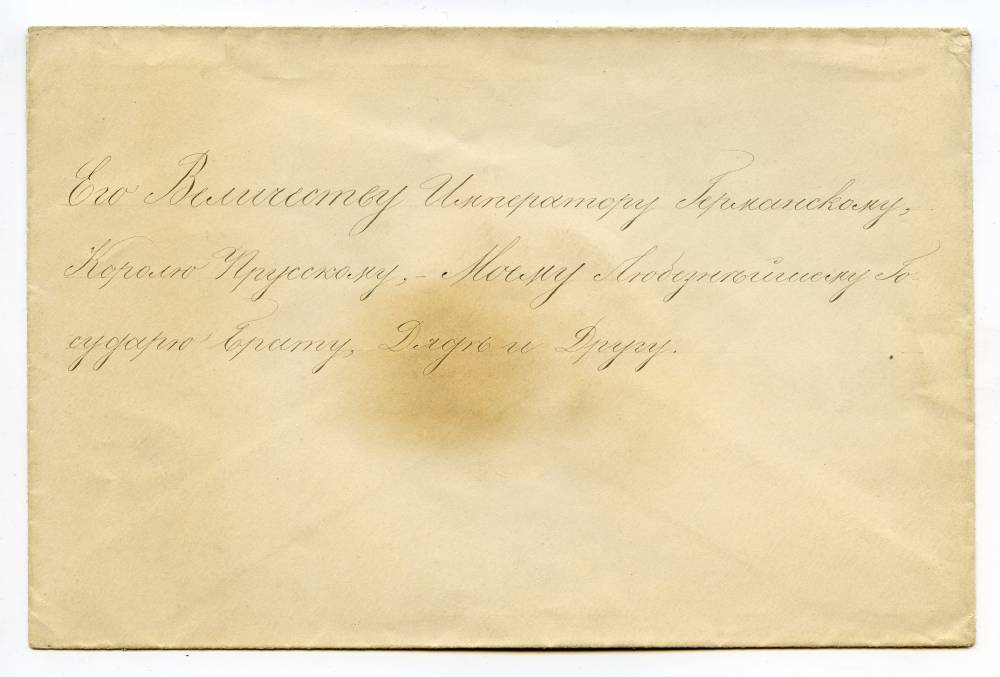 Его Величеству Императору Германскому,
Королю Прусскому, – Моему Любезнѣйшему Го-
сударю Брату, Дядѣ и Другу.